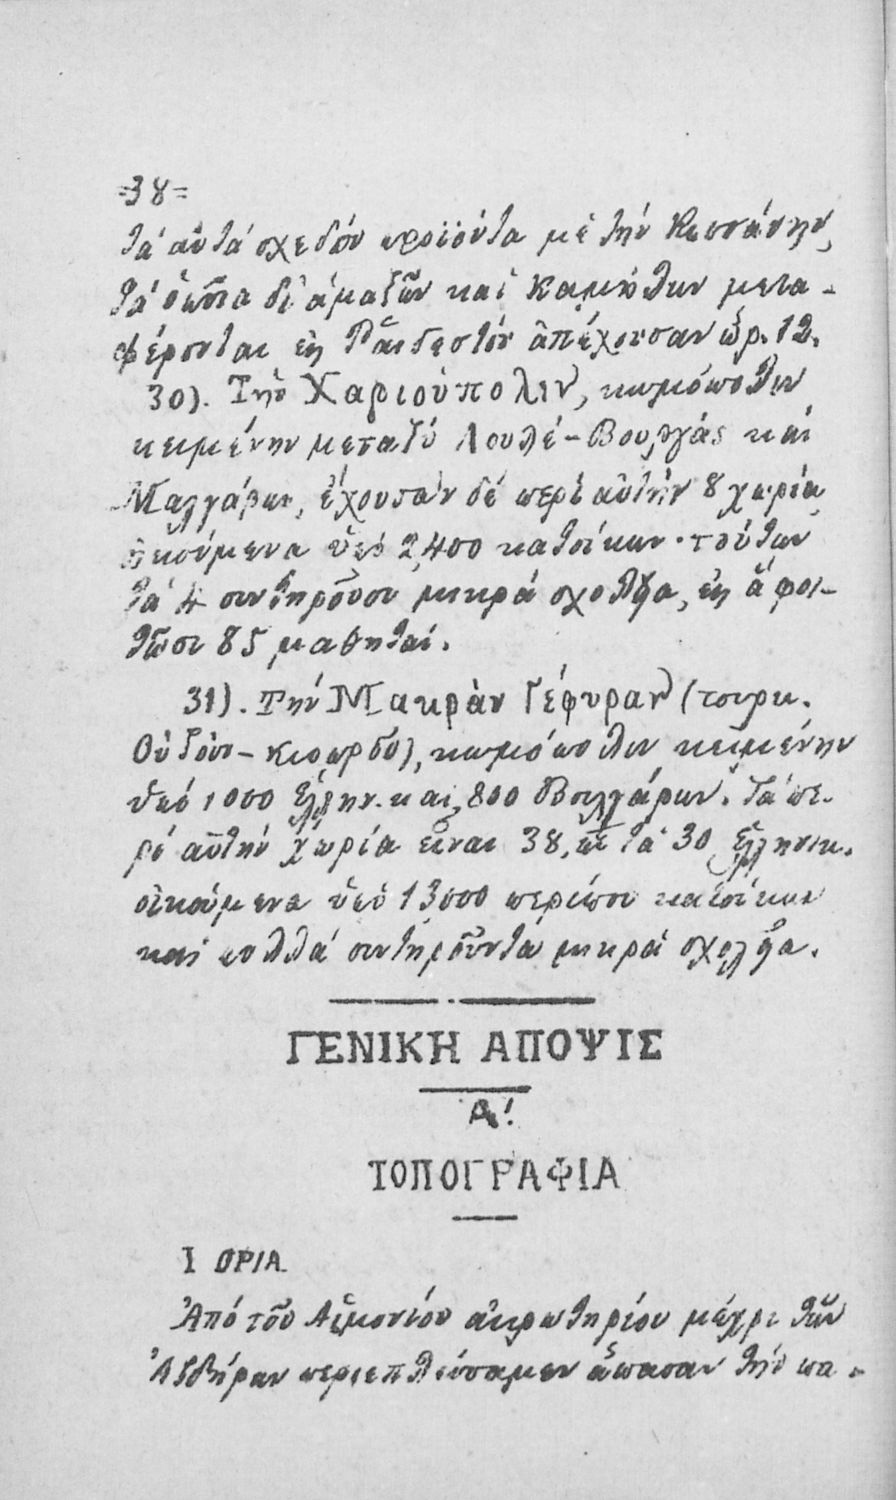 =38=
τὰ αὐτὰ σχεδὸν προϊόντα μὲ τὴν Κεσσάνην,
τὰ ὁποῖα δι' ἁμαξῶν καὶ καμήλων μετα-
φέρονται εἰς Ῥαιδεστὸν ἀπέχουσαν ὥρ. 12.
30). Τὴν Χαριούπολιν, κωμόπολιν
κειμένην μεταξὺ Λουλέ-Βουργάς καὶ
Μαλγάρων, ἔχουσαν δὲ περὶ αὐτὴν 8 χωρία
οἰκούμενα ὑπὸ 2,400 κατοίκων· τούτων
τὰ 4 συντηροῦσι μικρὰ σχολεῖα, εἰς ἃ φοι-
τῶσι 85 μαθηταί.
31). Τὴν Μακρὰν Γέφυραν (τουρκ.
Οὐζοὺν-Κιοπρδοῦ), κωμόπολιν κειμένην
ὑπὸ 1000 Ἑλλήν. καὶ 800 Βουλγάρων. Τὰ πε-
ρὶ αὐτὴν χωρία εἶναι 38, ὧν τὰ 30 Ἑλληνικ.
οἰκούμενα ὑπὸ 13000 περίπου κατοίκων
καὶ πολλὰ συντηροῦντα μικρὰ σχολεῖα.
ΓΕΝΙΚΗ ΑΠΟΨΙΣ
Α'.
ΤΟΠΟΓΡΑΦΙΑ
Ι ΟΡΙΑ
Ἀπὸ τοῦ Αἱμονίου ἀκρωτηρίου μέχρι τῶν
Ἀβδήρων περιεπλεύσαμεν ἅπασαν τὴν πα-